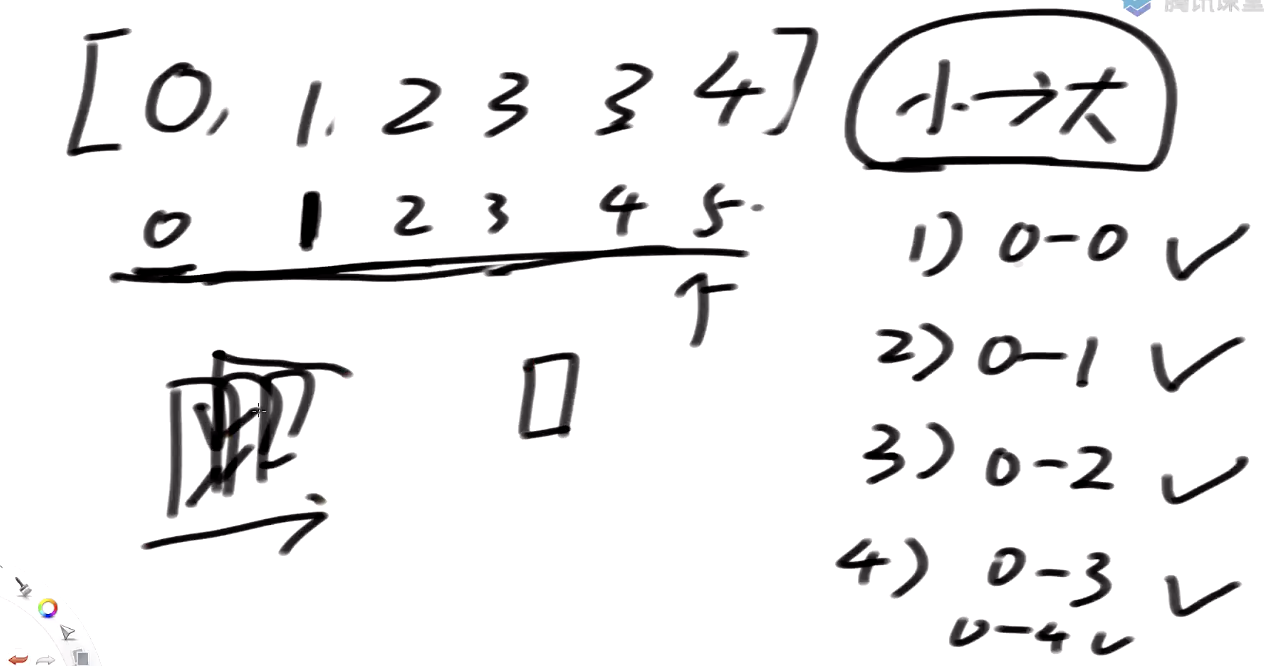 腾讯课堂
[0, 1, 2 3 3 4] 小→大
0 1 2 3 4 5
1) 0-0 ✓
2) 0-1 ✓
3) 0-2 ✓
4) 0-3 ✓
0-4 ✓